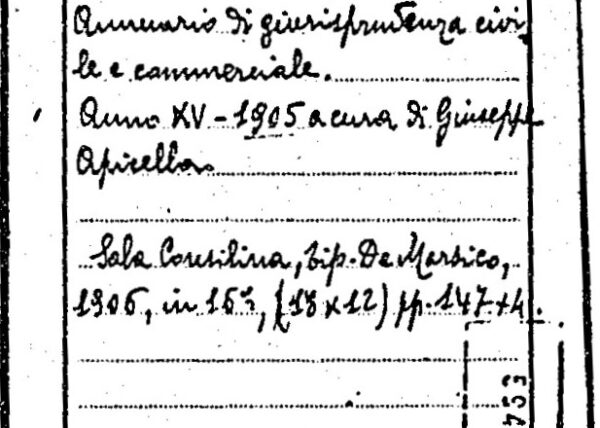 Annuario di giurisprudenza civi-
le e commerciale.
Anno XV - 1905 a cura di Giuseppe
Apicella
Sala Consilina, tip. De Marsico,
1906, in 16º, (18 x 12) pp. 147 + 4.